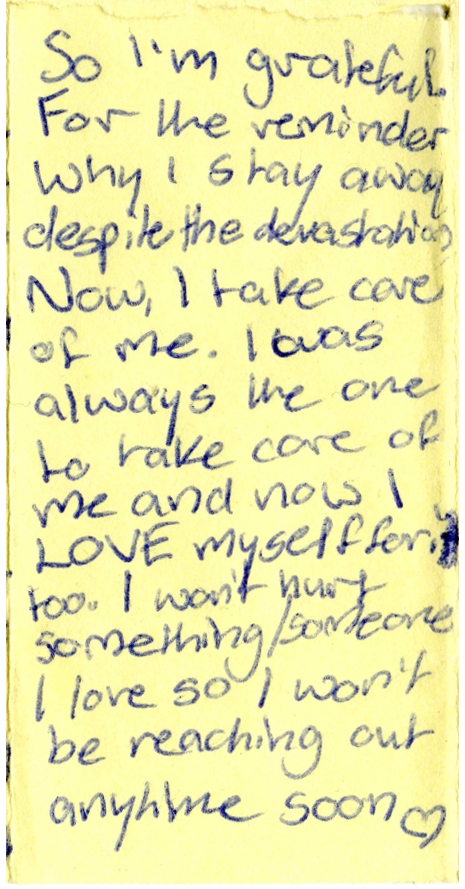 So I'm grateful
For the reminder
Why I stay away
despite the devastation
Now, I take care
of me. I was
always the one
to take care of
me and now I
LOVE myself for it
too. I won't hurt
something/someone
I love so I won't
be reaching out
anytime soon ♡